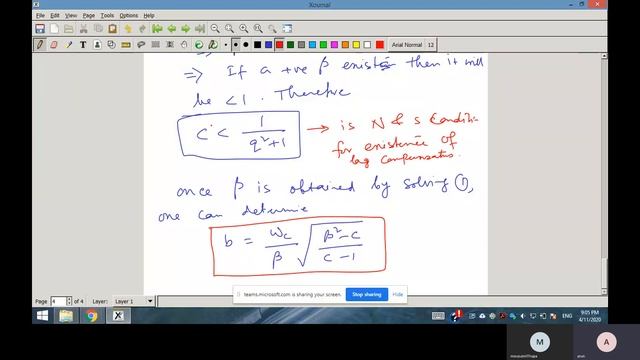 Xournal
File Edit View Page Tools Options Help
Arial Normal 12
⇒ If a +ve β exists then it will
be < 1. Therefore
c < 1/(q²+1) → is N & S Conditi
for existence of
lag compensator.
once β is obtained by solving ①,
one can determine
b = ω_c/β √((β²-c)/(c-1))
Page 4 of 4 Layer: Layer 1
teams.microsoft.com is sharing your screen. Stop sharing Hide
ENG
9:05 PM
4/11/2020
M
A